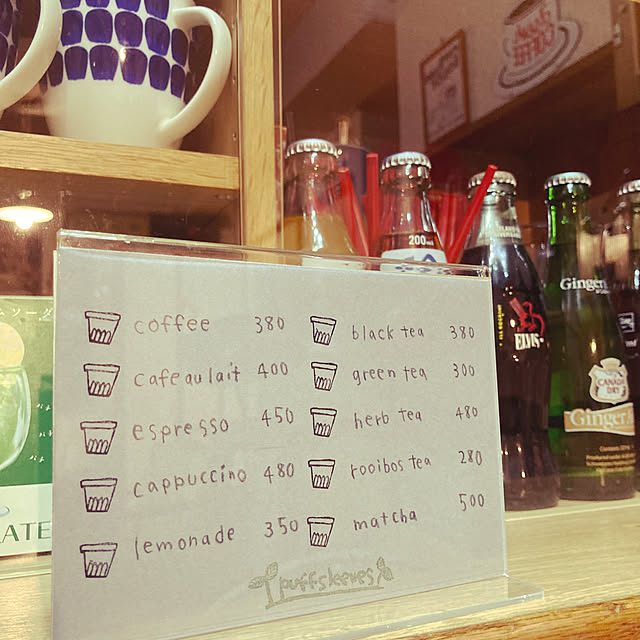 coffee 380
cafe au lait 400
espresso 450
cappuccino 480
lemonade 350
black tea 380
green tea 300
herb tea 480
rooibos tea 280
matcha 500
puffsleeves
200ml
ELVIS
Ginger
CANADA DRY
Ginger
ATE